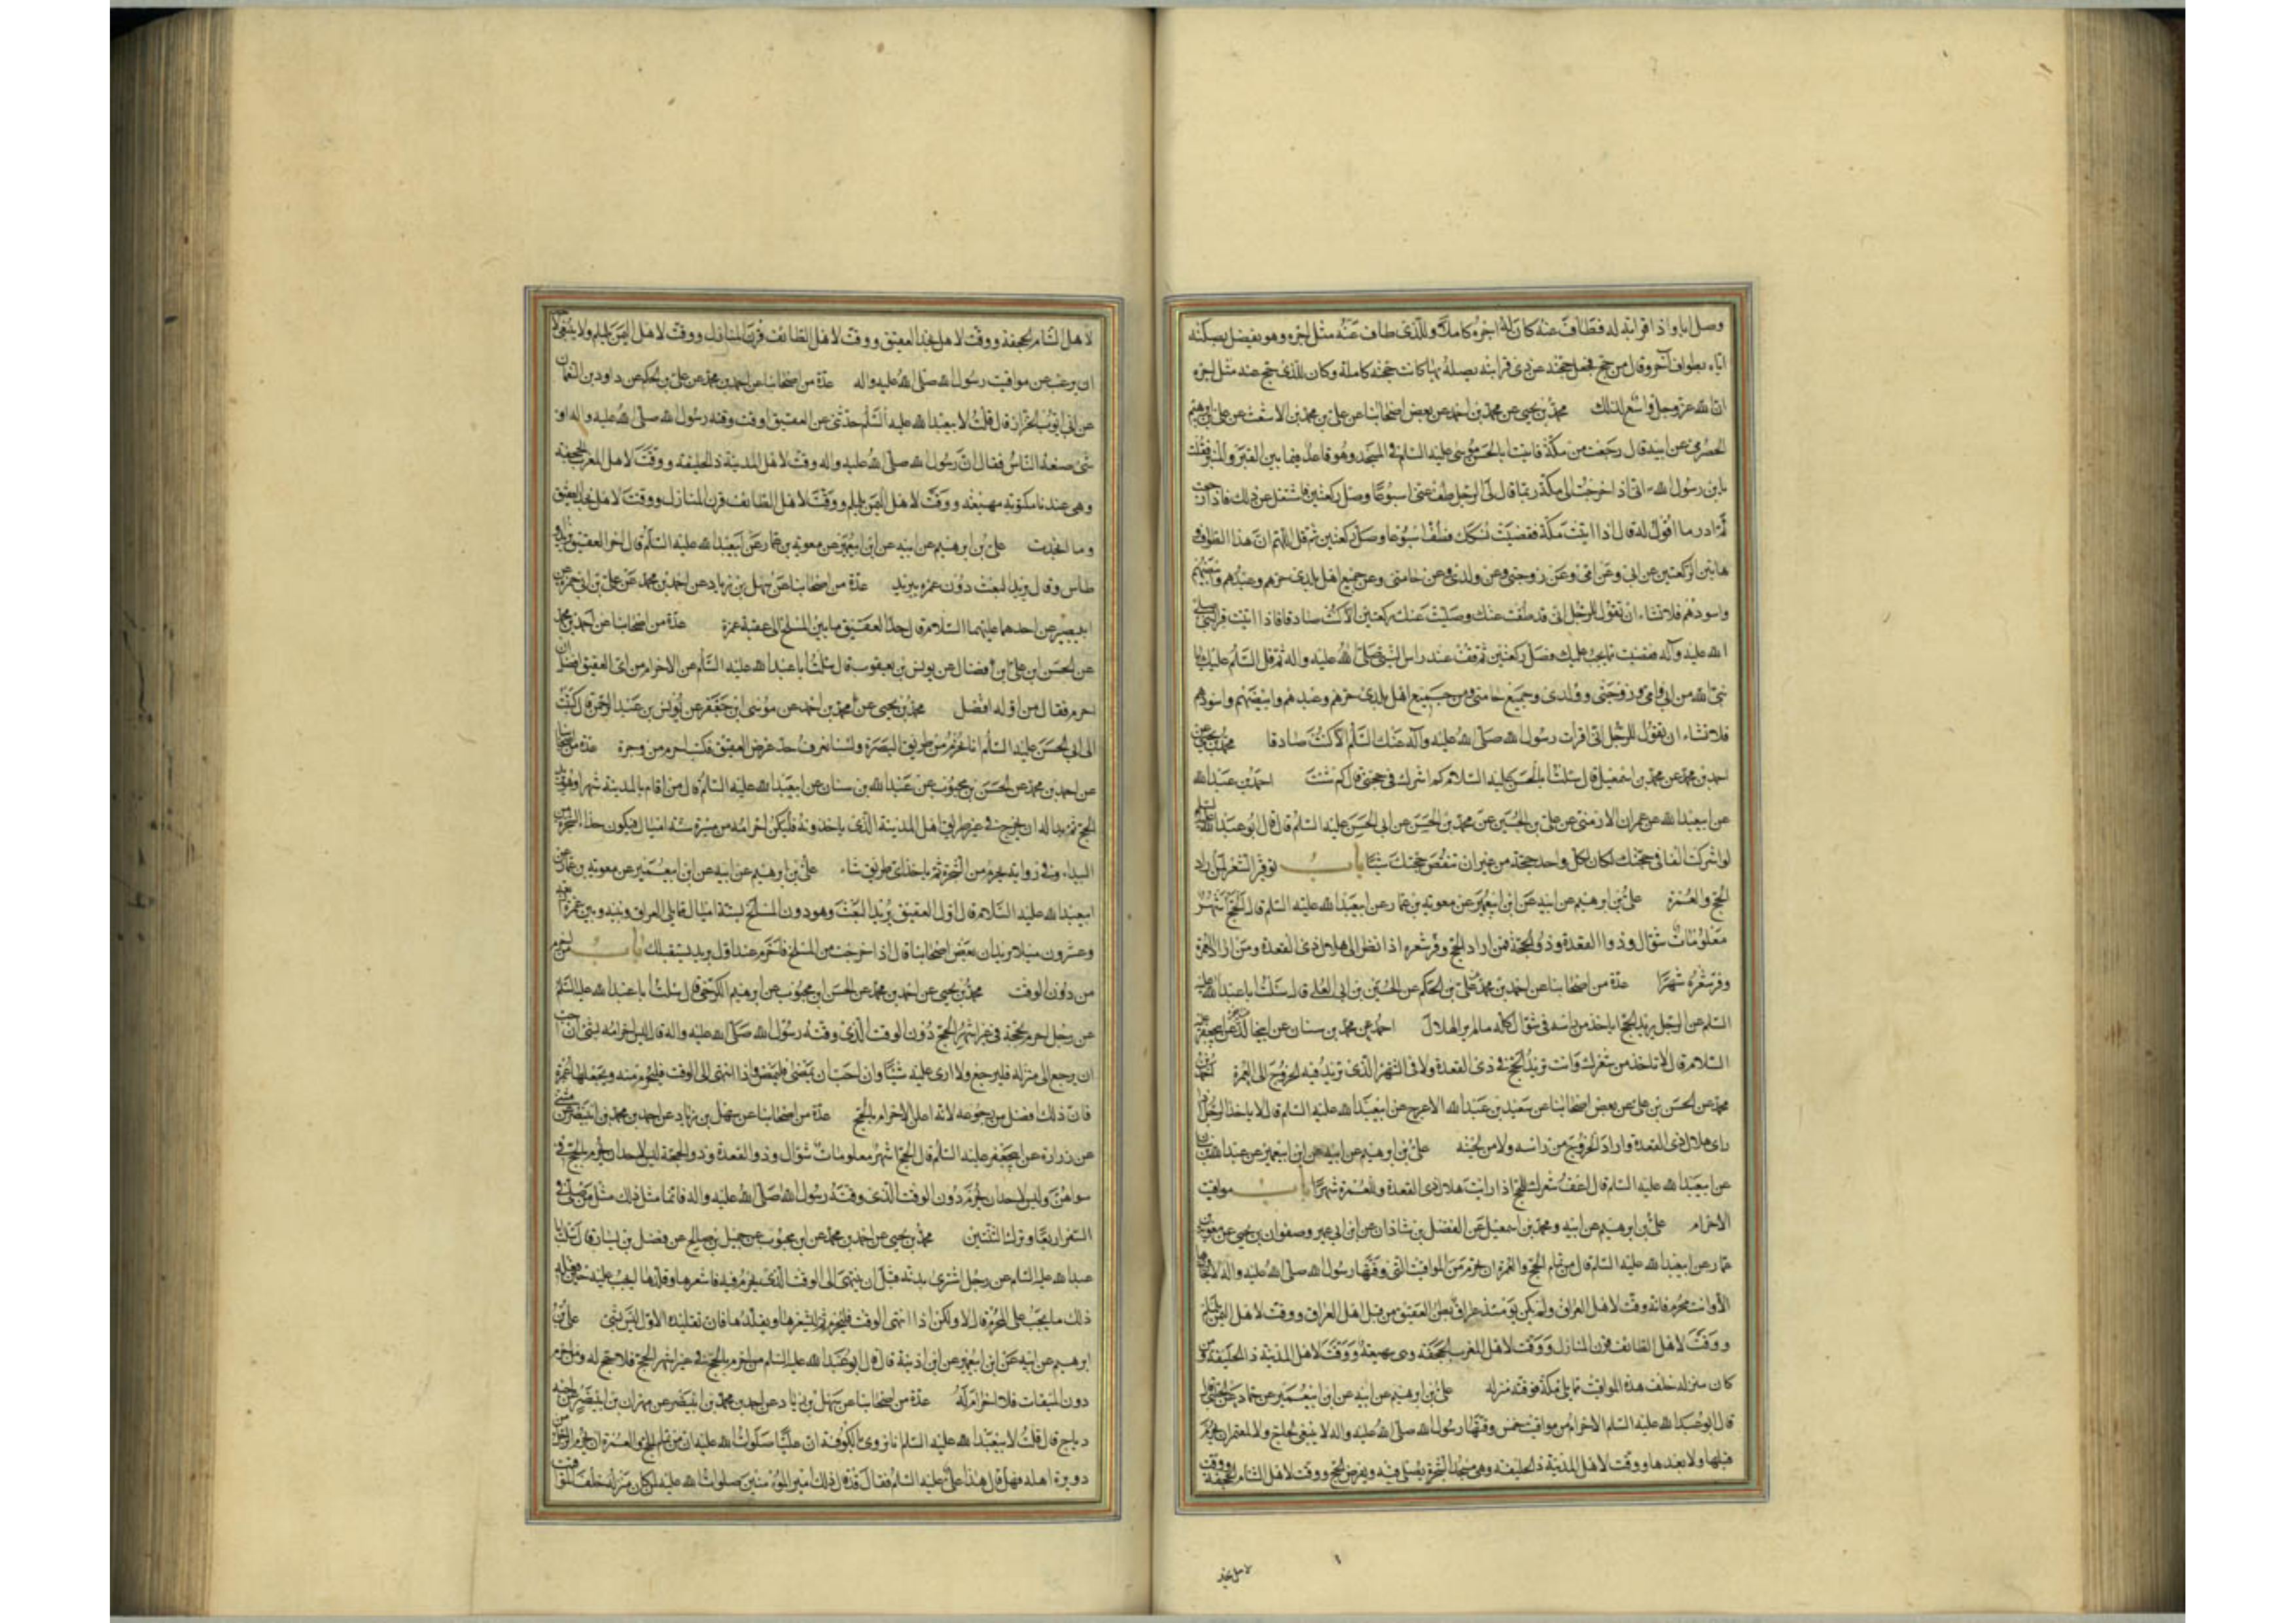 وصل اباه او ذا قرابة له فطاف عنه كان له اجره كاملا وللذى طاف عنه مثل اجره وهو يفضل بصلته
اياه بطواف آخر وقال من حج فجعل حجته عن ذى قرابته يصله بها كانت حجته كاملة وكان للذى حج عنه مثل اجره
ان الله عز وجل واسع لذلك محمد بن يحيى عن محمد بن احمد عن بعض اصحابنا عن على بن محمد بن الاشعث عن على بن ابرهيم
الحضرمى عن ابيه قال رجعت من مكة فاتيت ابا الحسن موسى عليه السلم فى المسجد وهو قاعد فيما بين القبر والمنبر فقلت
يا بن رسول الله انى اذا خرجت الى مكة ربما قال لى الرجل طف عنى اسبوعا وصل ركعتين فاشتغل عن ذلك فاذا رجعت
لم ادر ما اقول له قال اذا اتيت مكة فقضيت نسكك فطف اسبوعا وصل ركعتين ثم قل اللهم ان هذا الطواف و
هاتين الركعتين عن ابى وعن امى وعن زوجتى وعن ولدى وعن حامتى وعن جميع اهل بلدى حرهم وعبدهم وابيضهم
واسودهم فلا تشاء ان تقول للرجل انى قد طفت عنك وصليت عنك ركعتين الا كنت صادقا فاذا اتيت قبر النبى صلى
الله عليه وآله فقضيت ما يجب عليك فصل ركعتين ثم قف عند راس النبى صلى الله عليه واله ثم قل السلم عليك يا
نبى الله من ابى وامى وزوجتى وولدى وجميع حامتى ومن جميع اهل بلدى حرهم وعبدهم وابيضهم واسودهم
فلا تشاء ان تقول للرجل انى اقرات رسول الله صلى الله عليه وآله عنك السلم الا كنت صادقا محمد بن يحيى عن
احمد بن محمد عن محمد بن اسمعيل قال سئلت ابا الحسن عليه السلام كم اشرك فى حجتى قال كم شئت احمد بن عبد الله
عن ابيعبد الله عن عمران الارمنى عن على بن الحسين عن محمد بن الحسن عن ابى الحسن عليه السلم قال قال ابو عبد الله عليه السلم
لو اشركت الفا فى حجتك لكان لكل واحد حجة من غير ان تنقص حجتك شيئا باب توفير الشعر لمن اراد
الحج والعمرة على بن ابرهيم عن ابيه عن ابن ابيعمير عن معوية بن عمار عن ابيعبد الله عليه السلم قال الحج اشهر
معلومات شوال وذوا القعدة وذو الحجة فمن اراد الحج وفر شعره اذا نظر الى هلال ذى القعدة ومن اراد العمرة
وفر شعره شهرا عدة من اصحابنا عن احمد بن محمد عن على بن الحكم عن الحسين بن ابى العلى قال سئلت ابا عبد الله عليه
السلم عن الرجل يريد الحج اياخذ من راسه فى شوال كله ما لم ير الهلال احمد عن محمد بن سنان عن ابى خالد عن ابيجعفر عليه
السلام قال لا تاخذ من شعرك وانت تريد الحج فى ذى القعدة ولا فى الشهر الذى تريد فيه الخروج الى العمرة احمد بن
محمد عن الحسن بن على عن بعض اصحابنا عن سعيد بن عبد الله الاعرج عن ابيعبد الله عليه السلم قال لا ياخذ الرجل اذا
راى هلال ذى القعدة واراد الخروج من راسه ولا من لحيته على بن ابرهيم عن ابيه عن ابن ابيعمير عن عبد الله بن سنان
عن ابيعبد الله عليه السلم قال اعف شعرك للحج اذا رايت هلال ذى القعدة وللعمرة شهرا باب مواقيت
الاحرام على بن ابرهيم عن ابيه ومحمد بن اسمعيل عن الفضل بن شاذان عن ابن ابى عمير وصفوان بن يحيى عن معوية بن
عمار عن ابيعبد الله عليه السلم قال من تمام الحج والعمرة ان تحرم من المواقيت التى وقتها رسول الله صلى الله عليه واله لا تجاوزها
الا وانت محرم فانه وقت لاهل العراق ولم يكن يومئذ عراق بطن العقيق من قبل اهل العراق ووقت لاهل اليمن يلملم
ووقت لاهل الطائف قرن المنازل ووقت لاهل المغرب الجحفة وهى مهيعة ووقت لاهل المدينة ذا الحليفة ومن
كان منزله خلف هذه المواقيت مما يلى مكة فوقته منزله على بن ابرهيم عن ابيه عن ابن ابيعمير عن حماد عن الحلبى قال
قال ابو عبد الله عليه السلم الاحرام من مواقيت خمس وقتها رسول الله صلى الله عليه واله لا ينبغى لحاج ولا لمعتمر ان يحرم
قبلها ولا بعدها ووقت لاهل المدينة ذا الحليفة وهى مسجد الشجرة يصلى فيه ويفرض الحج ووقت لاهل الشام الجحفة ووقت
لاهل نجد
لاهل الشام الجحفة ووقت لاهل نجد العقيق ووقت لاهل الطائف قرن المنازل ووقت لاهل اليمن يلملم ولا ينبغى لاحد
ان يرغب عن مواقيت رسول الله صلى الله عليه واله عدة من اصحابنا عن احمد بن محمد عن على بن الحكم عن داود بن النعمان
عن ابى ايوب الخزاز قال قلت لابيعبد الله عليه السلم حدثنى عن العقيق اوقت وقته رسول الله صلى الله عليه واله او
شىء صنعه الناس فقال ان رسول الله صلى الله عليه واله وقت لاهل المدينة ذا الحليفة ووقت لاهل المغرب الجحفة
وهى عندنا مكتوبة مهيعة ووقت لاهل اليمن يلملم ووقت لاهل الطائف قرن المنازل ووقت لاهل نجد العقيق
وما انجدت على بن ابرهيم عن ابيه عن ابن ابيعمير عن معوية بن عمار عن ابيعبد الله عليه السلم قال اخر العقيق بريد او
طاس وقال بريد البعث دون غمرة ببريد عدة من اصحابنا عن سهل بن زياد عن احمد بن محمد عن على بن ابى حمزة عن
ابيبصير عن احدهما عليهما السلام قال حد العقيق ما بين المسلخ الى عقبة غمرة عدة من اصحابنا عن احمد بن محمد
عن الحسن ابن على ابن فضال عن يونس بن يعقوب قال سئلت ابا عبد الله عليه السلم عن الاحرام من اى العقيق افضل ان
احرم فقال من اوله افضل محمد بن يحيى عن محمد بن احمد عن موسى ابن جعفر عن يونس بن عبد الرحمن قال كتبت
الى ابى الحسن عليه السلم انا نحرم من طريق البصرة ولسنا نعرف حد عرض العقيق فكتب احرم من وجرة عدة من اصحابنا
عن احمد بن محمد عن الحسن بن محبوب عن عبد الله بن سنان عن ابيعبد الله عليه السلم قال من اقام بالمدينة شهرا وهو يريد
الحج ثم بدا له ان يخرج فى غير طريق اهل المدينة الذى ياخذونه فليكن احرامه من مسيرة ستة اميال فيكون حذاء الشجرة من
البيداء وفى رواية يحرم من الشجرة ثم ياخذ اى طريق شاء على بن ابرهيم عن ابيه عن ابن ابيعمير عن معوية بن عمار عن
ابيعبد الله عليه السلام قال اول العقيق بريد البعث وهو دون المسلخ بستة اميال مما يلى العراق وبينه وبين غمرة اربعة
وعشرون ميلا بريدان بعض اصحابنا قال اذا خرجت من المسلخ فاحرم عند اول بريد يستقبلك باب من احرم
من دون الوقت محمد بن يحيى عن احمد بن محمد عن الحسن ابن محبوب عن ابرهيم الكرخى قال سئلت ابا عبد الله عليه السلم
عن رجل احرم بحجة فى غير اشهر الحج دون الوقت الذى وقته رسول الله صلى الله عليه واله قال ليس احرامه بشئ ان احب
ان يرجع الى منزله فليرجع ولا ارى عليه شيئا وان احب ان يمضى فليمض فاذا انتهى الى الوقت فليحرم منه ويجعلها عمرة
فان ذلك افضل من رجوعه لانه اعلن الاحرام بالحج عدة من اصحابنا عن سهل بن زياد عن احمد بن محمد بن ابينصر عن مثنى
عن زرارة عن ابيجعفر عليه السلم قال الحج اشهر معلومات شوال وذو القعدة وذو الحجة ليس لاحد ان يحرم بالحج فى
سواهن وليس لاحد ان يحرم دون الوقت الذى وقته رسول الله صلى الله عليه واله فانما مثل ذلك مثل من صلى فى
السفر اربعا وترك الثنتين محمد بن يحيى عن احمد بن محمد عن ابن محبوب عن جميل بن صالح عن فضيل بن يسار قال سئلت ابا
عبد الله عليه السلم عن رجل اشترى بدنة قبل ان ينتهى الى الوقت الذى يحرم فيه فاشعرها وقلدها ايجب عليه حين فعل
ذلك ما يجب على المحرم قال لا ولكن اذا انتهى الى الوقت فليحرم ثم ليشعرها ويقلدها فان تقليده الاول ليس بشئ على بن
ابرهيم عن ابيه عن ابن ابيعمير عن ابن اذينة قال قال ابو عبد الله عليه السلم من احرم بالحج فى غير اشهر الحج فلا حج له ومن احرم
دون الميقات فلا احرام له عدة من اصحابنا عن سهل بن زياد عن احمد بن محمد بن ابينصر عن مهران بن ابينصر عن اخيه
رباح قال قلت لابيعبد الله عليه السلم انا نروى بالكوفة ان عليا صلوات الله عليه قال ان من تمام الحج والعمرة ان يحرم الرجل من
دويرة اهله فهل قال هذا على عليه السلم فقال قد قال ذلك امير المؤمنين صلوات الله عليه لمن كان منزله خلف المواقيت